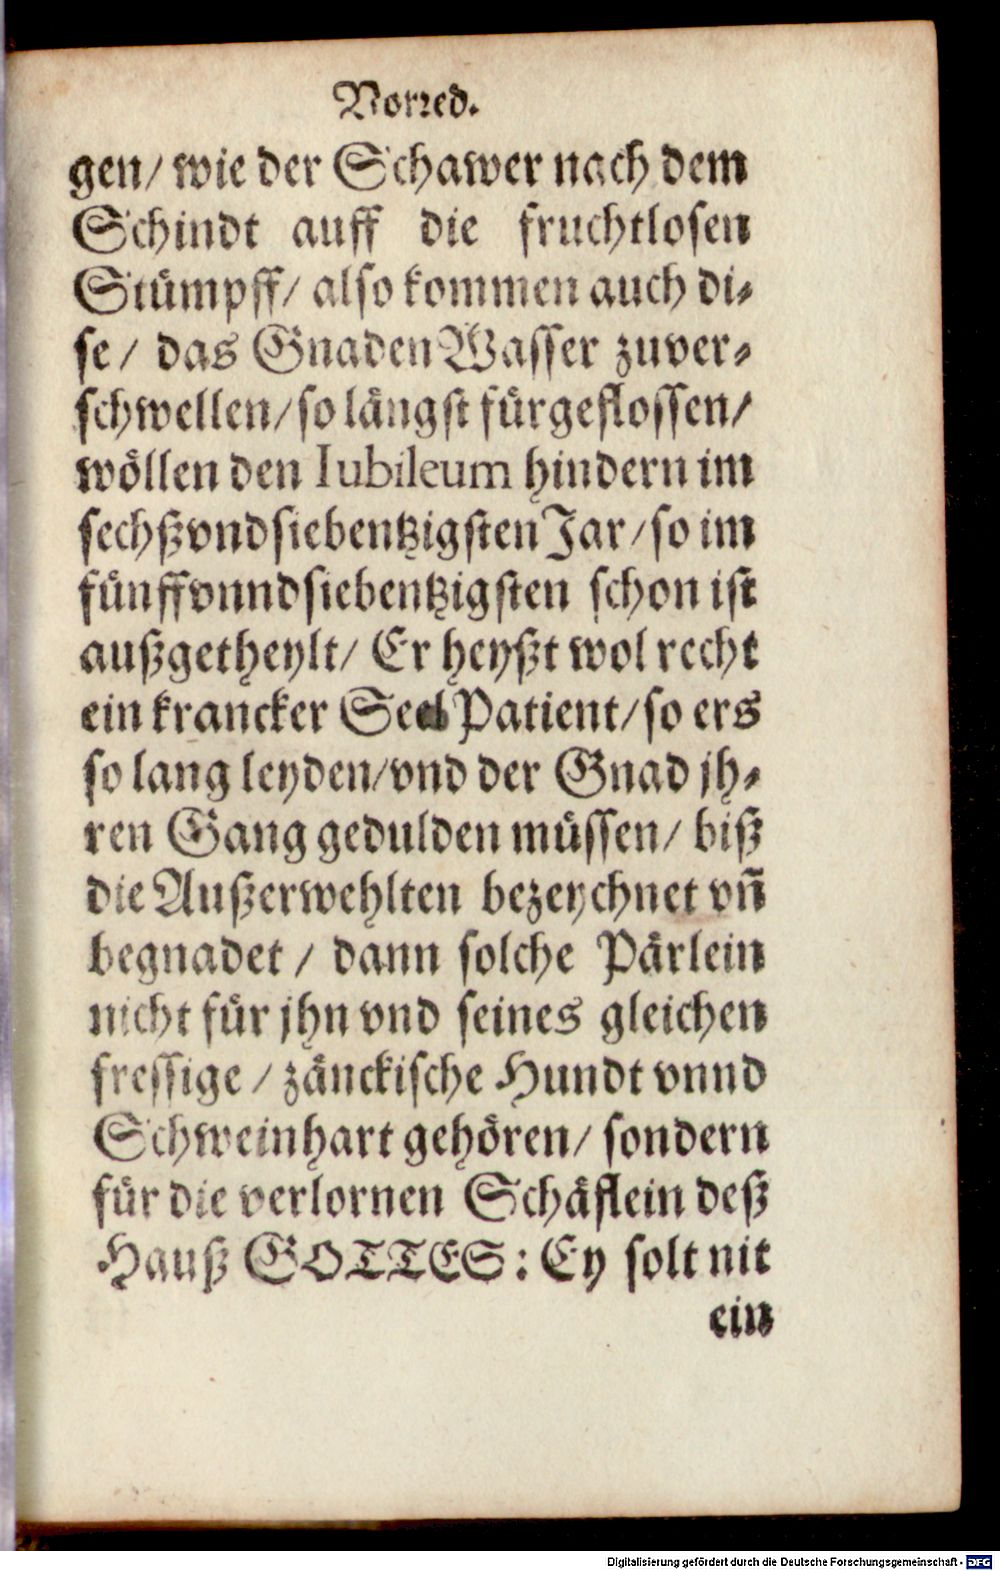 Vorred.
gen/ wie der Schawer nach dem
Schindt auff die fruchtlosen
Stümpff/ also kommen auch di⸗
se/ das Gnaden Wasser zuver⸗
schwellen/ so längst fürgeflossen/
wöllen den Iubileum hindern im
sechßvndsiebentzigsten Jar/ so im
fünffvnndsiebentzigsten schon ist
außgetheylt/ Er heyßt wol recht
ein krancker Seel Patient/ so ers
so lang leyden/ vnd der Gnad jh⸗
ren Gang gedulden müssen/ biß
die Außerwehlten bezeychnet vñ
begnadet/ dann solche Pärlein
nicht für jhn vnd seines gleichen
fressige/ zänckische Hundt vnnd
Schweinhart gehören/ sondern
für die verlornen Schäflein deß
Hauß GOTTES: Ey solt nit
ein
Digitalisierung gefördert durch die Deutsche Forschungsgemeinschaft - DFG